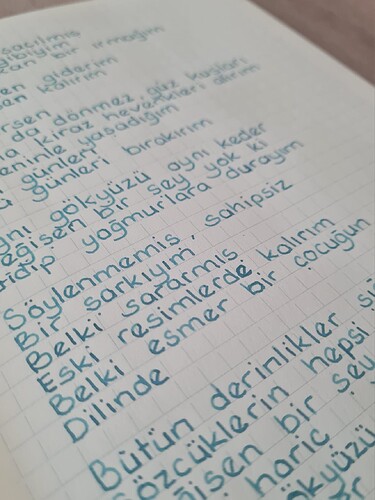 saçılmış
gibiyim
bir ırmağım
giderim
kalırım
da dönmez güz kuşları
kiraz hevenkleri alırım
yaşadığım
günler
günleri bırakırım
gökyüzü aynı keder
bir şey yok ki
gidip yağmurlara durayım
Söylenmemiş, sahipsiz
Bir şarkıyım
Belki sararmış
Eski resimlerde kalırım
Belki esmer bir çocuğun
Dilinde
Bütün derinlikler
Sözcüklerin hepsi
bir şey
hariç